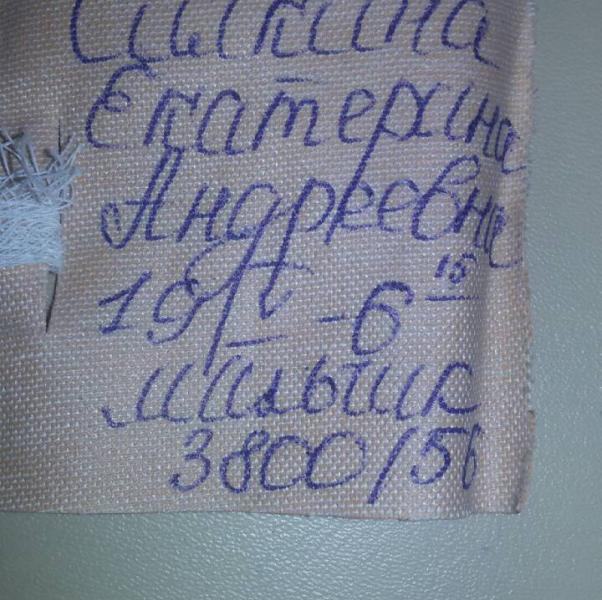 Екатерина
Андреевна
6 15
мальчик
3800/56